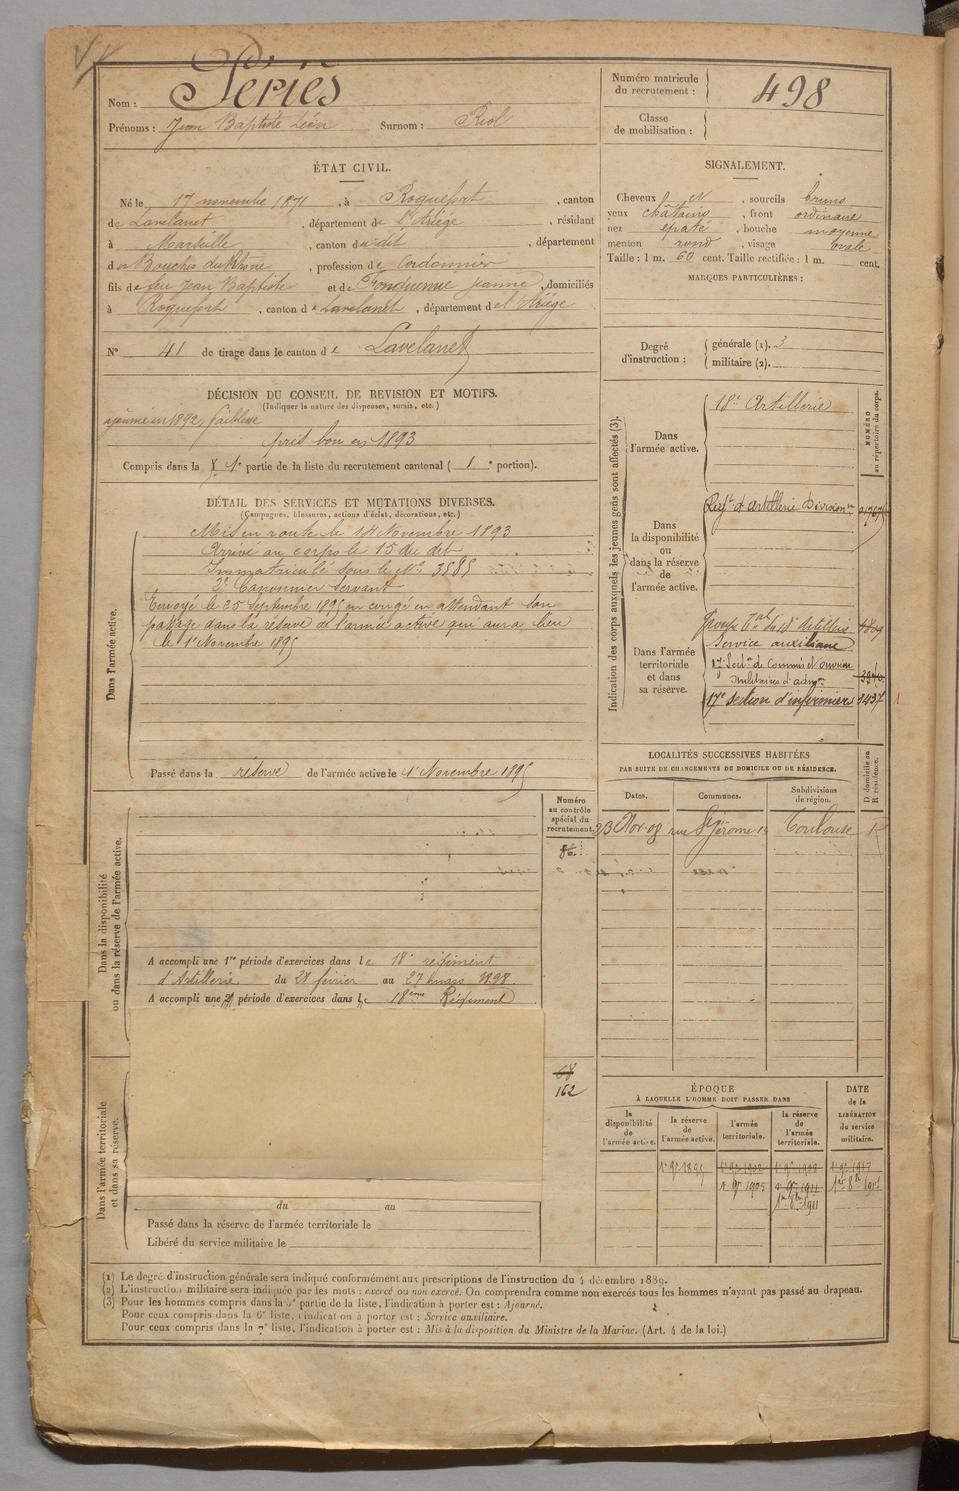 Nom : Péries
Prénoms : Jean Baptiste Léon Surnom : Riol
ÉTAT CIVIL.
Né le 17 novembre 1871, à Roquefort, canton
de Lavelanet, département de l'Ariége, résidant
à Marseille, canton du dit, département
des Bouches du Rhône, profession de Cordonnier
fils de feu Jean Baptiste et de Jeanne, domiciliés
à Roquefort, canton de Lavelanet, département de l'Ariége
N° 41 de tirage dans le canton de Lavelanet
DÉCISION DU CONSEIL DE REVISION ET MOTIFS.
(Indiquer la nature des dispenses, sursis, etc.)
ajourné en 1892, faiblesse
pris bon en 1893
Compris dans la 1e partie de la liste du recrutement cantonal ( 1e portion).
DÉTAIL DES SERVICES ET MUTATIONS DIVERSES.
(Campagnes, blessures, actions d'éclat, décorations, etc.)
Dans l'armée active.
Mis en route le 14 Novembre 1893
Arrivé au corps le 15 du dit
Immatriculé sous le N° 3585
2e Canonnier Servant
Envoyé le 25 septembre 1895 en congé en attendant son
passage dans la réserve de l'armée active qui aura lieu
le 1er Novembre 1895
Passé dans la réserve de l'armée active le 1er Novembre 1895
Numéro
au contrôle
spécial du
recrutement.
Dans la disponibilité
ou dans la réserve de l'armée active.
A accompli une 1re période d'exercices dans le 18e régiment
d'Artillerie du 28 février au 27 mars 1898
A accompli une 2e période d'exercices dans le 18ème Régiment
Dans l'armée territoriale
et dans sa réserve.
68
162
du au
Passé dans la réserve de l'armée territoriale le
Libéré du service militaire le
Numéro matricule
du recrutement : 498
Classe
de mobilisation :
SIGNALEMENT.
Cheveux et, sourcils bruns
yeux châtains, front ordinaire
nez épaté, bouche moyenne
menton rond, visage ovale
Taille : 1 m. 60 cent. Taille rectifiée : 1 m. cent.
MARQUES PARTICULIÈRES :
Degré
d'instruction :
générale (1). 3
militaire (2).
Indication des corps auxquels les jeunes gens sont affectés (3).
NUMÉRO
au répertoire du corps.
Dans
l'armée active.
18e Artillerie
Dans
la disponibilité
ou
dans la réserve
de
l'armée active.
Régt d'Artillerie Divisionre
Dans l'armée
territoriale
et dans
sa réserve.
Service auxiliaire
17e Secton de Commis et ouvriers
militaires d'admon 3940
17e Section d'infirmiers 3437
LOCALITÉS SUCCESSIVES HABITÉES
PAR SUITE DE CHANGEMENTS DE DOMICILE OU DE RÉSIDENCE.
D domicile ou
R résidence.
Dates. Communes. Subdivisions
de région.
23 Nov. 08 rue St Jérome 14 Toulouse R
ÉPOQUE
À LAQUELLE L'HOMME DOIT PASSER DANS
DATE
de la
LIBÉRATION
du service
militaire.
la
disponibilité
de
l'armée active.
la réserve
de
l'armée active.
l'armée
territoriale.
la réserve
de
l'armée
territoriale.
1er 9bre 1895
1er 9bre 1905 1er 9bre 1911
1er 8bre 1911
(1) Le degré d'instruction générale sera indiqué conformément aux prescriptions de l'instruction du 4 décembre 1889.
(2) L'instruction militaire sera indiquée par les mots : exercé ou non exercé. On comprendra comme non exercés tous les hommes n'ayant pas passé au drapeau.
(3) Pour les hommes compris dans la 5e partie de la liste, l'indication à porter est : Ajourné.
Pour ceux compris dans la 6e liste, l'indication à porter est : Service auxiliaire.
Pour ceux compris dans la 7e liste, l'indication à porter est : Mis à la disposition du Ministre de la Marine. (Art. 4 de la loi.)